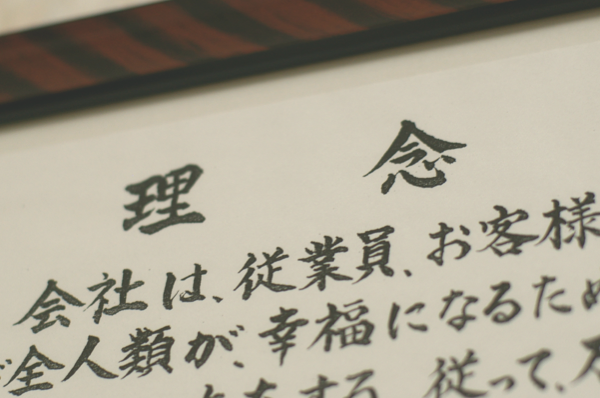 理念
会社は、従業員、お客様
全人類が、幸福になるため
をする 従って、